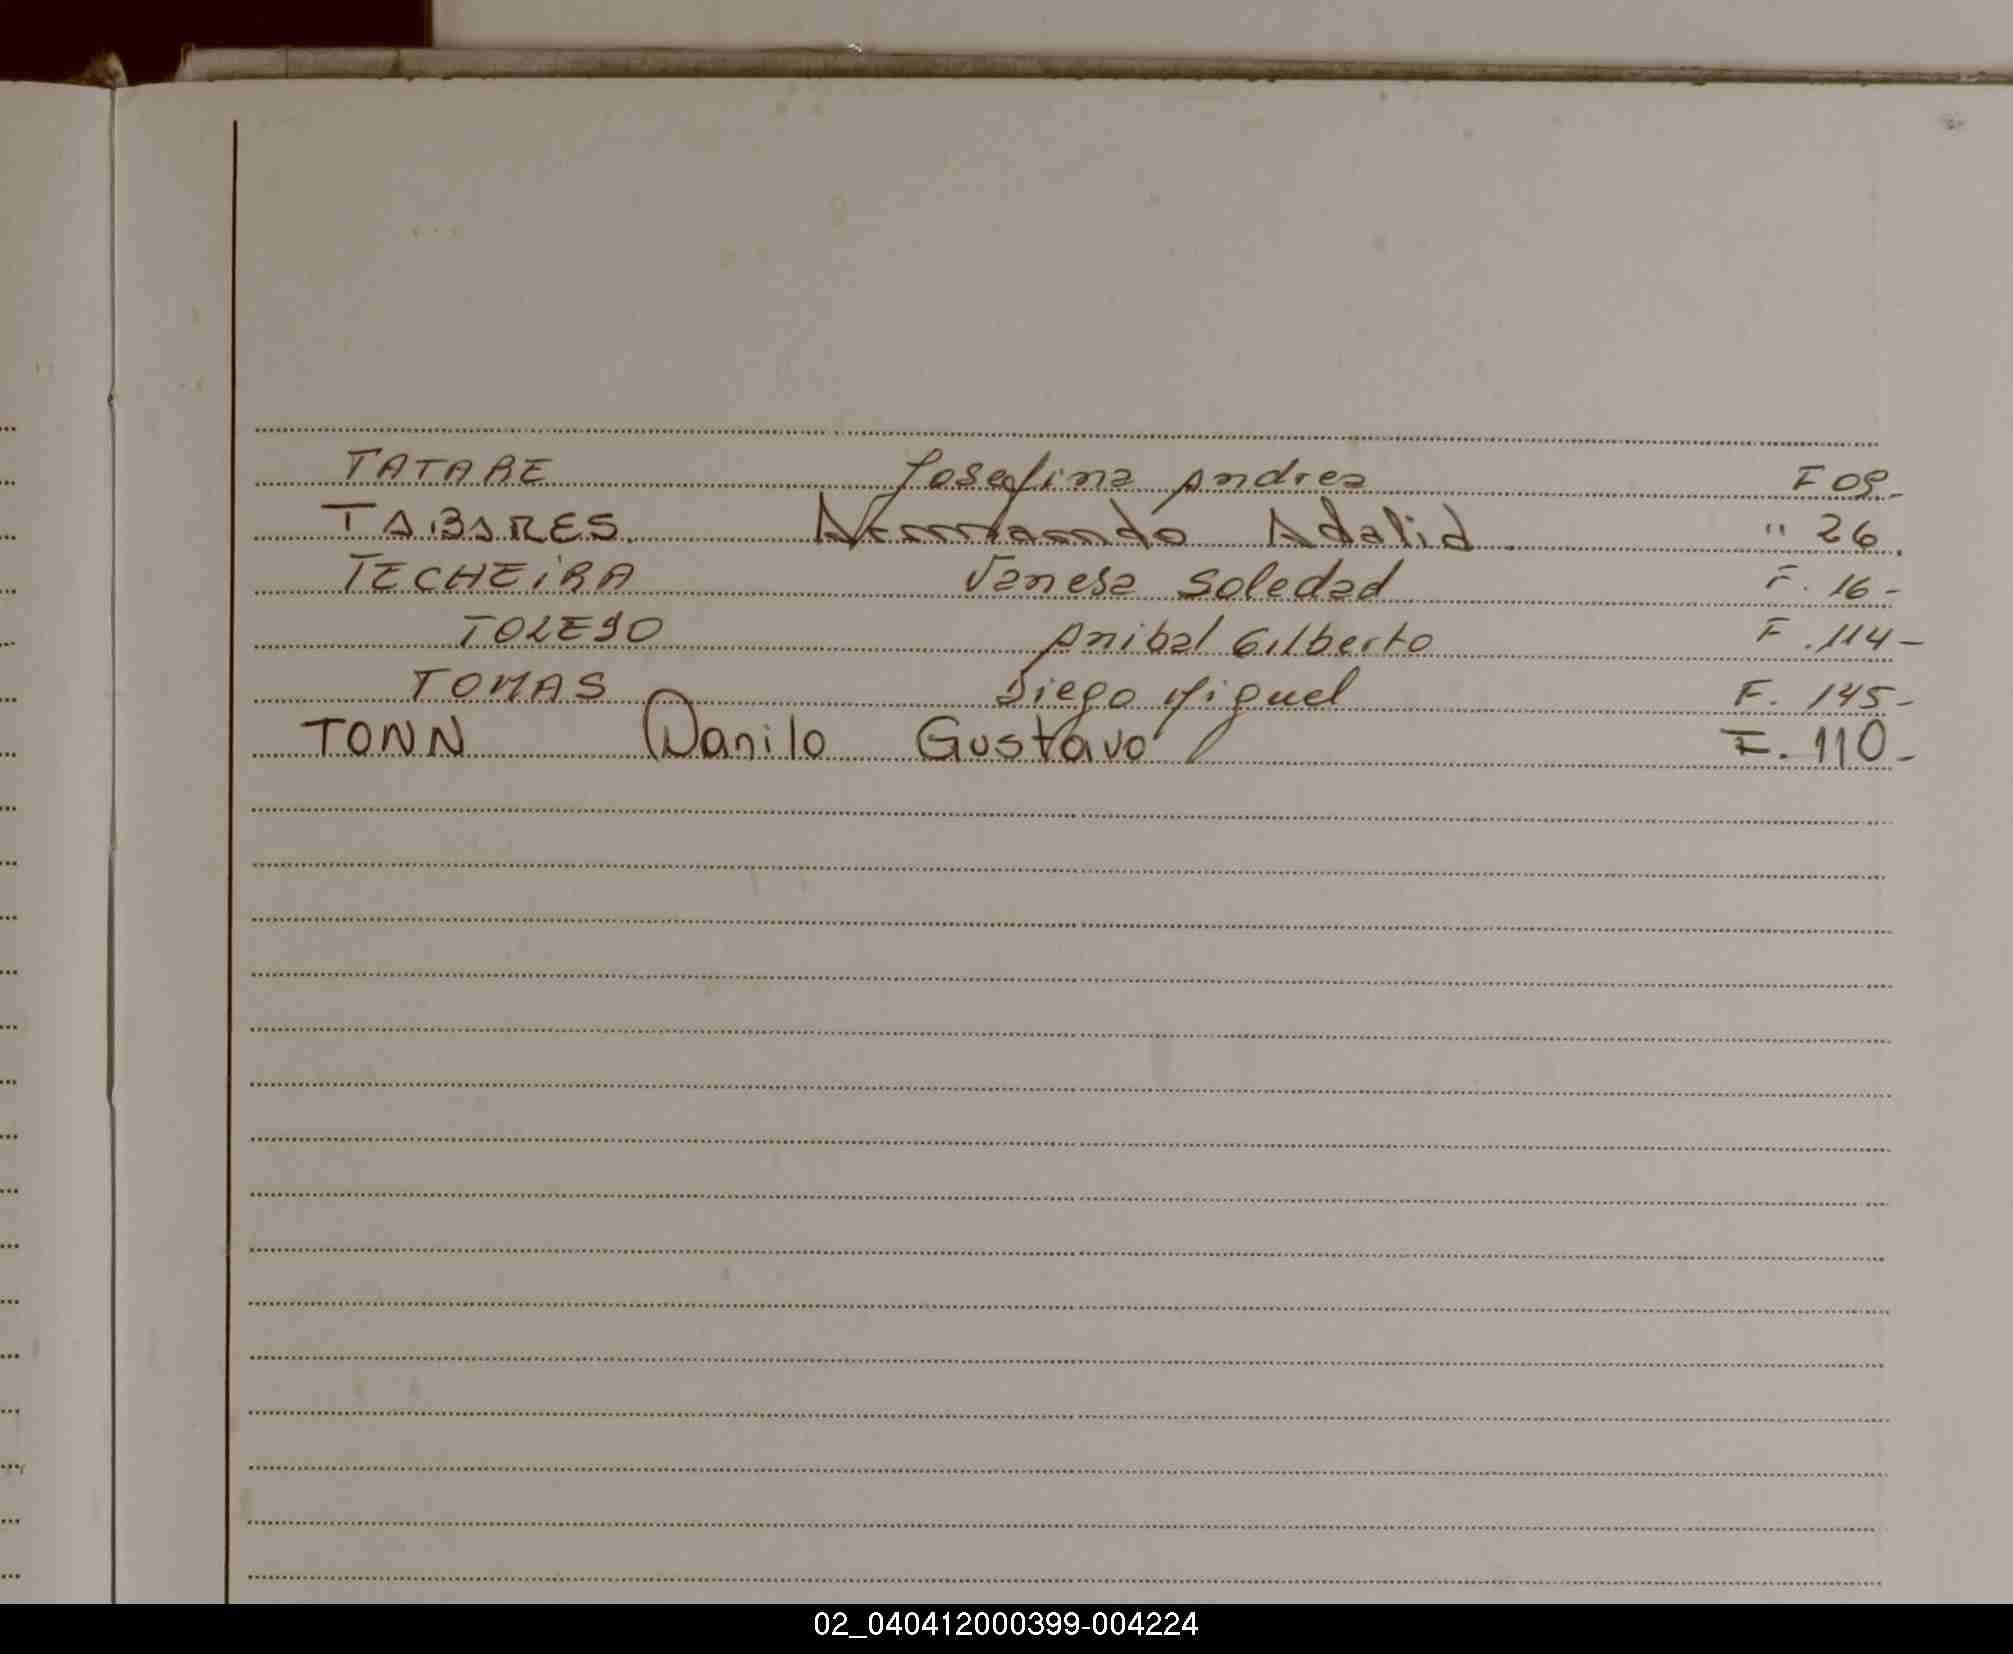 TATARE Josefina Andrea F 09-
TABARES. Armando Adalid. " 26.
TECHEiRA Vanesa Soledad F. 16-
TOLEDO Anibal Gilberto F. 114-
TOMAS Diego Miguel F. 145-
TONN Danilo Gustavo F. 110-
02_040412000399-004224